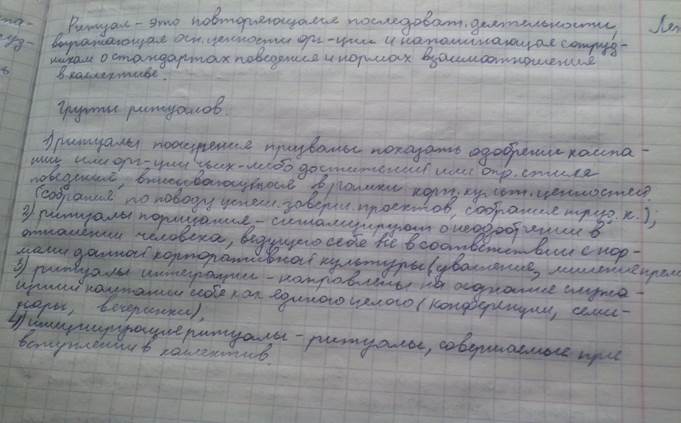 Ритуал - это повторяющаяся последоват. деятельности,
выражающая осн. ценности орг-ции и напоминающая сотруд-
никам о стандартах поведения и нормах взаимоотношения
в коллективе.
Группы ритуалов.
1) ритуалы поощрения призваны показать одобрение компа-
нии или орг-ции чьих-либо достижений или опр. стиля
поведения, вписывающегося в рамки корп. культ. ценностей
(собрания по поводу успеш. заверш. проектов, собрания труд. к.);
2) ритуалы порицания - сигнализируют о неодобрении в
отношении человека, ведущего себя не в соответствии с нор-
мами данной корпоративной культуры (увольнение, лишение прем
3) ритуалы интеграции - направлены на осознание служа-
щими компании себя как единого целого (конференции, семи-
нары, вечеринки),
4) инициирующие ритуалы - ритуалы, совершаемые при
вступлении в коллектив.